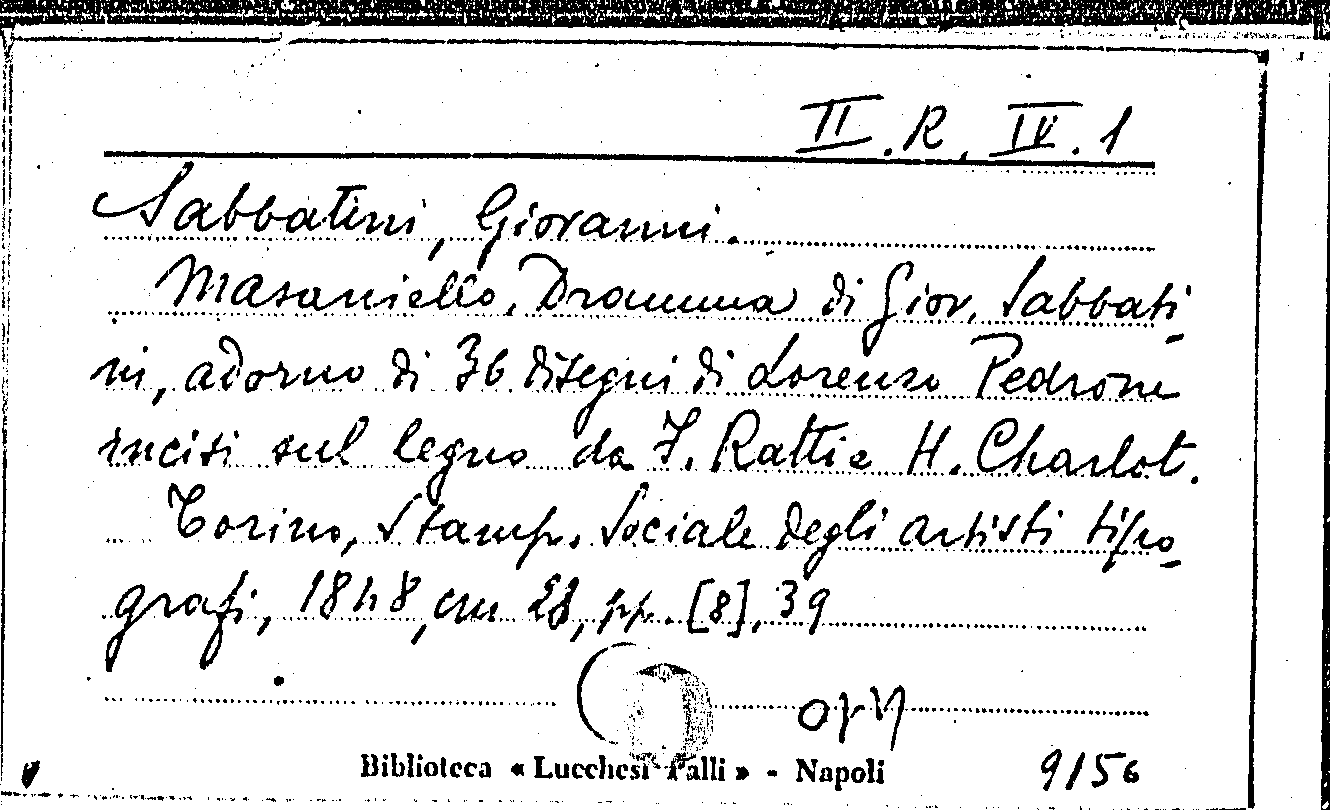 II. R. IV. 1
Sabbatini, Giovanni.
Masaniello, Dramma di Giov. Sabbati-
ni, adorno di 36 disegni di Lorenzo Pedrone
incisi sul legno da F. Ratti e H. Charlot.
Torino, Stamp. Sociale degli artisti tipo-
grafi, 1848, cm 28, pp. [8], 39
Biblioteca « Lucchesi Palli » - Napoli
9/56